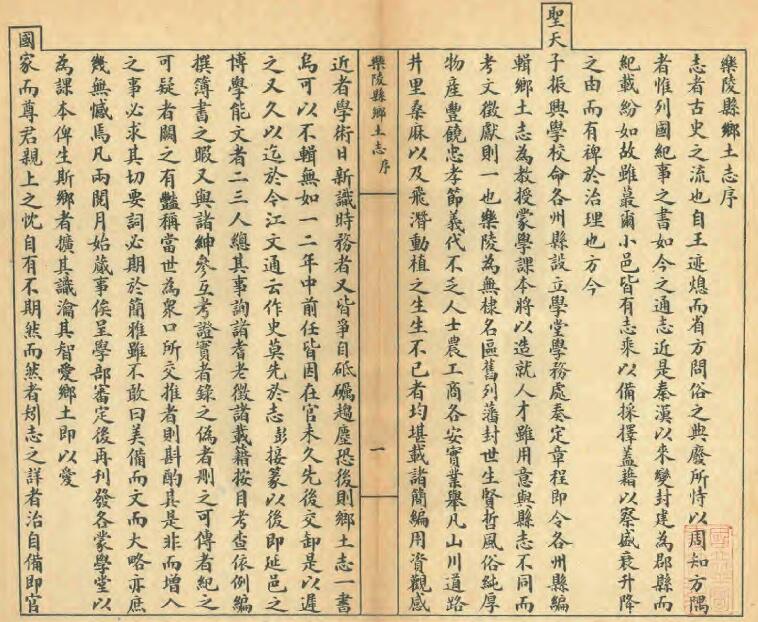 樂陵縣鄉土志序
志者古史之流也自王迹熄而省方問俗之典廢所恃以周知方隅
者惟列國紀事之書如今之通志近是秦漢以來變封建為郡縣而
紀載紛如故雖蕞爾小邑皆有志乘以備採擇蓋藉以察盛衰升降
之由而有裨於治理也方今
聖天子振興學校命各州縣設立學堂學務處奏定章程即令各州縣編
輯鄉土志為教授蒙學課本將以造就人才雖用意與縣志不同而
考文徵獻則一也樂陵為無棣名區舊列藩封世生賢哲風俗純厚
物產豐饒忠孝節義代不乏人士農工商各安實業舉凡山川道路
井里桑麻以及飛潛動植之生生不已者均堪載諸簡編用資觀感
樂陵縣鄉土志 序
一
近者學術日新識時務者又皆爭自砥礪趨塵恐後則鄉土志一書
烏可以不輯無如一二年中前任皆因在官未久先後交卸是以遲
之又久以迄於今江文通云作史莫先於志彭接篆以後即延邑之
博學能文者二三人總其事詢諸耆老徵諸載籍按目考查依例編
撰簿書之暇又與諸紳參互考證實者錄之偽者刪之可傳者紀之
可疑者闕之有豔稱當世為眾口所交推者則斟酌其是非而增入
之事必求其切要詞必期於簡雅雖不敢曰美備而文而大略亦庶
幾無憾焉凡兩閱月始蕆事俟呈學部審定後再刊發各蒙學堂以
為課本俾生斯鄉者擴其識瀹其智愛鄉土即以愛
國家而尊君親上之忱自有不期然而然者矧志之詳者治自備即官